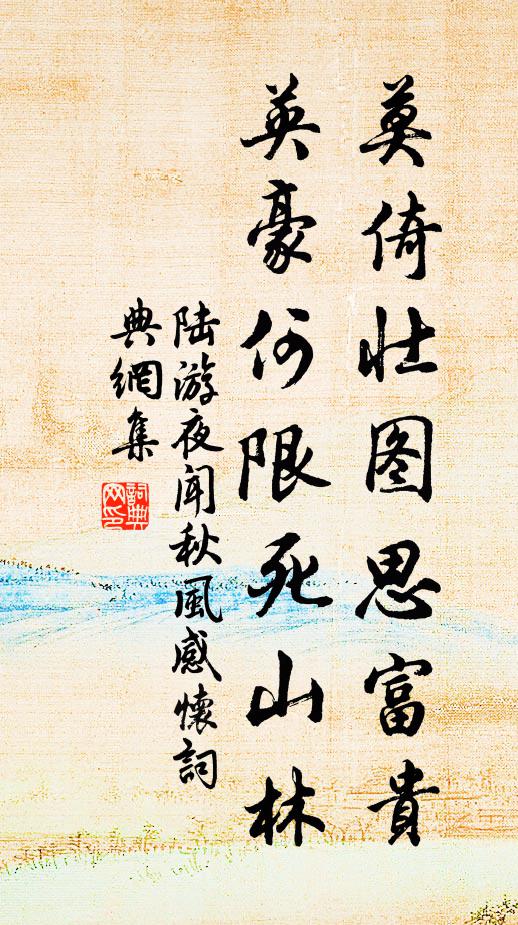 莫倚壮图思富貴
英豪何限死山林
陆游夜闻秋風感懷詞
典網集
詞典
网印